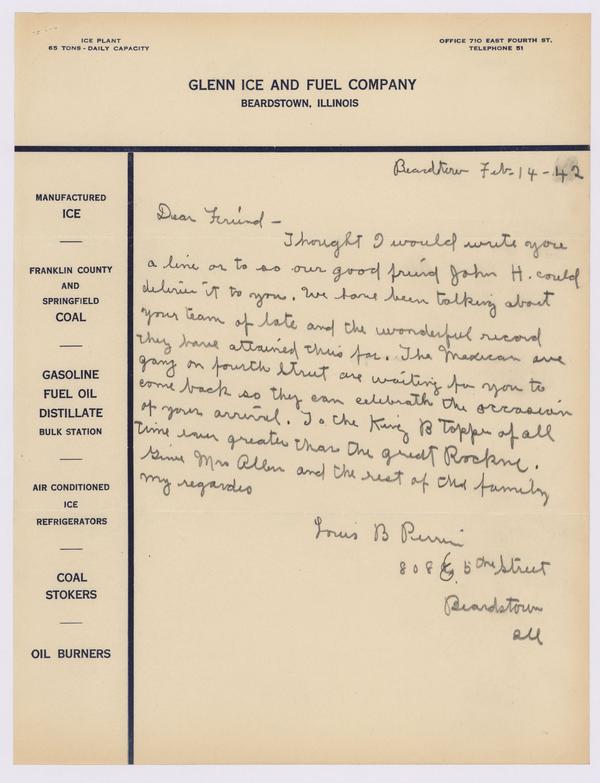 ICE PLANT
65 TONS - DAILY CAPACITY
OFFICE 710 EAST FOURTH ST.
TELEPHONE 51
GLENN ICE AND FUEL COMPANY
BEARDSTOWN, ILLINOIS
MANUFACTURED
ICE
FRANKLIN COUNTY
AND
SPRINGFIELD
COAL
GASOLINE
FUEL OIL
DISTILLATE
BULK STATION
AIR CONDITIONED
ICE
REFRIGERATORS
COAL
STOKERS
OIL BURNERS
Beardstown Feb-14-42
Dear Freind -
Thought I would write you
a line or to so our good freind John H. could
deliver it to you. We have been talking about
your team of late and the wonderful record
they have attained thus far. The Mexican ave
gang on fourth Street are waiting for you to
come back so they can celebrath the occasion
of your arrival. To the King B Topper of all
time even greater than the great Rockne.
Give Mrs Allen and the rest of the family
my regardes
Louis B Perrin
808 E. 5 the Street
Beardstown
Ill